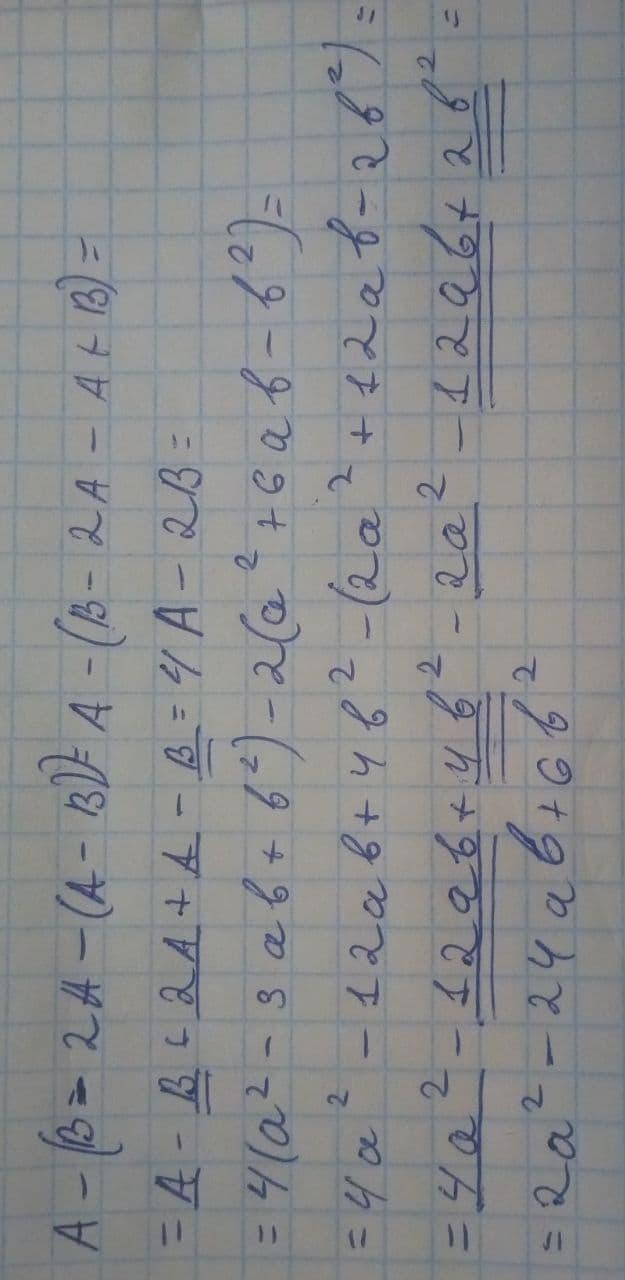 A - (B - 2A - (A - B)) = A - (B - 2A - A + B) =
= A - B + 2A + A - B = 4A - 2B =
= 4(a² - 3ab + b²) - 2(a² + 6ab - b²) =
= 4a² - 12ab + 4b² - (2a² + 12ab - 2b²) =
= 4a² - 12ab + 4b² - 2a² - 12ab + 2b² =
= 2a² - 24ab + 6b²